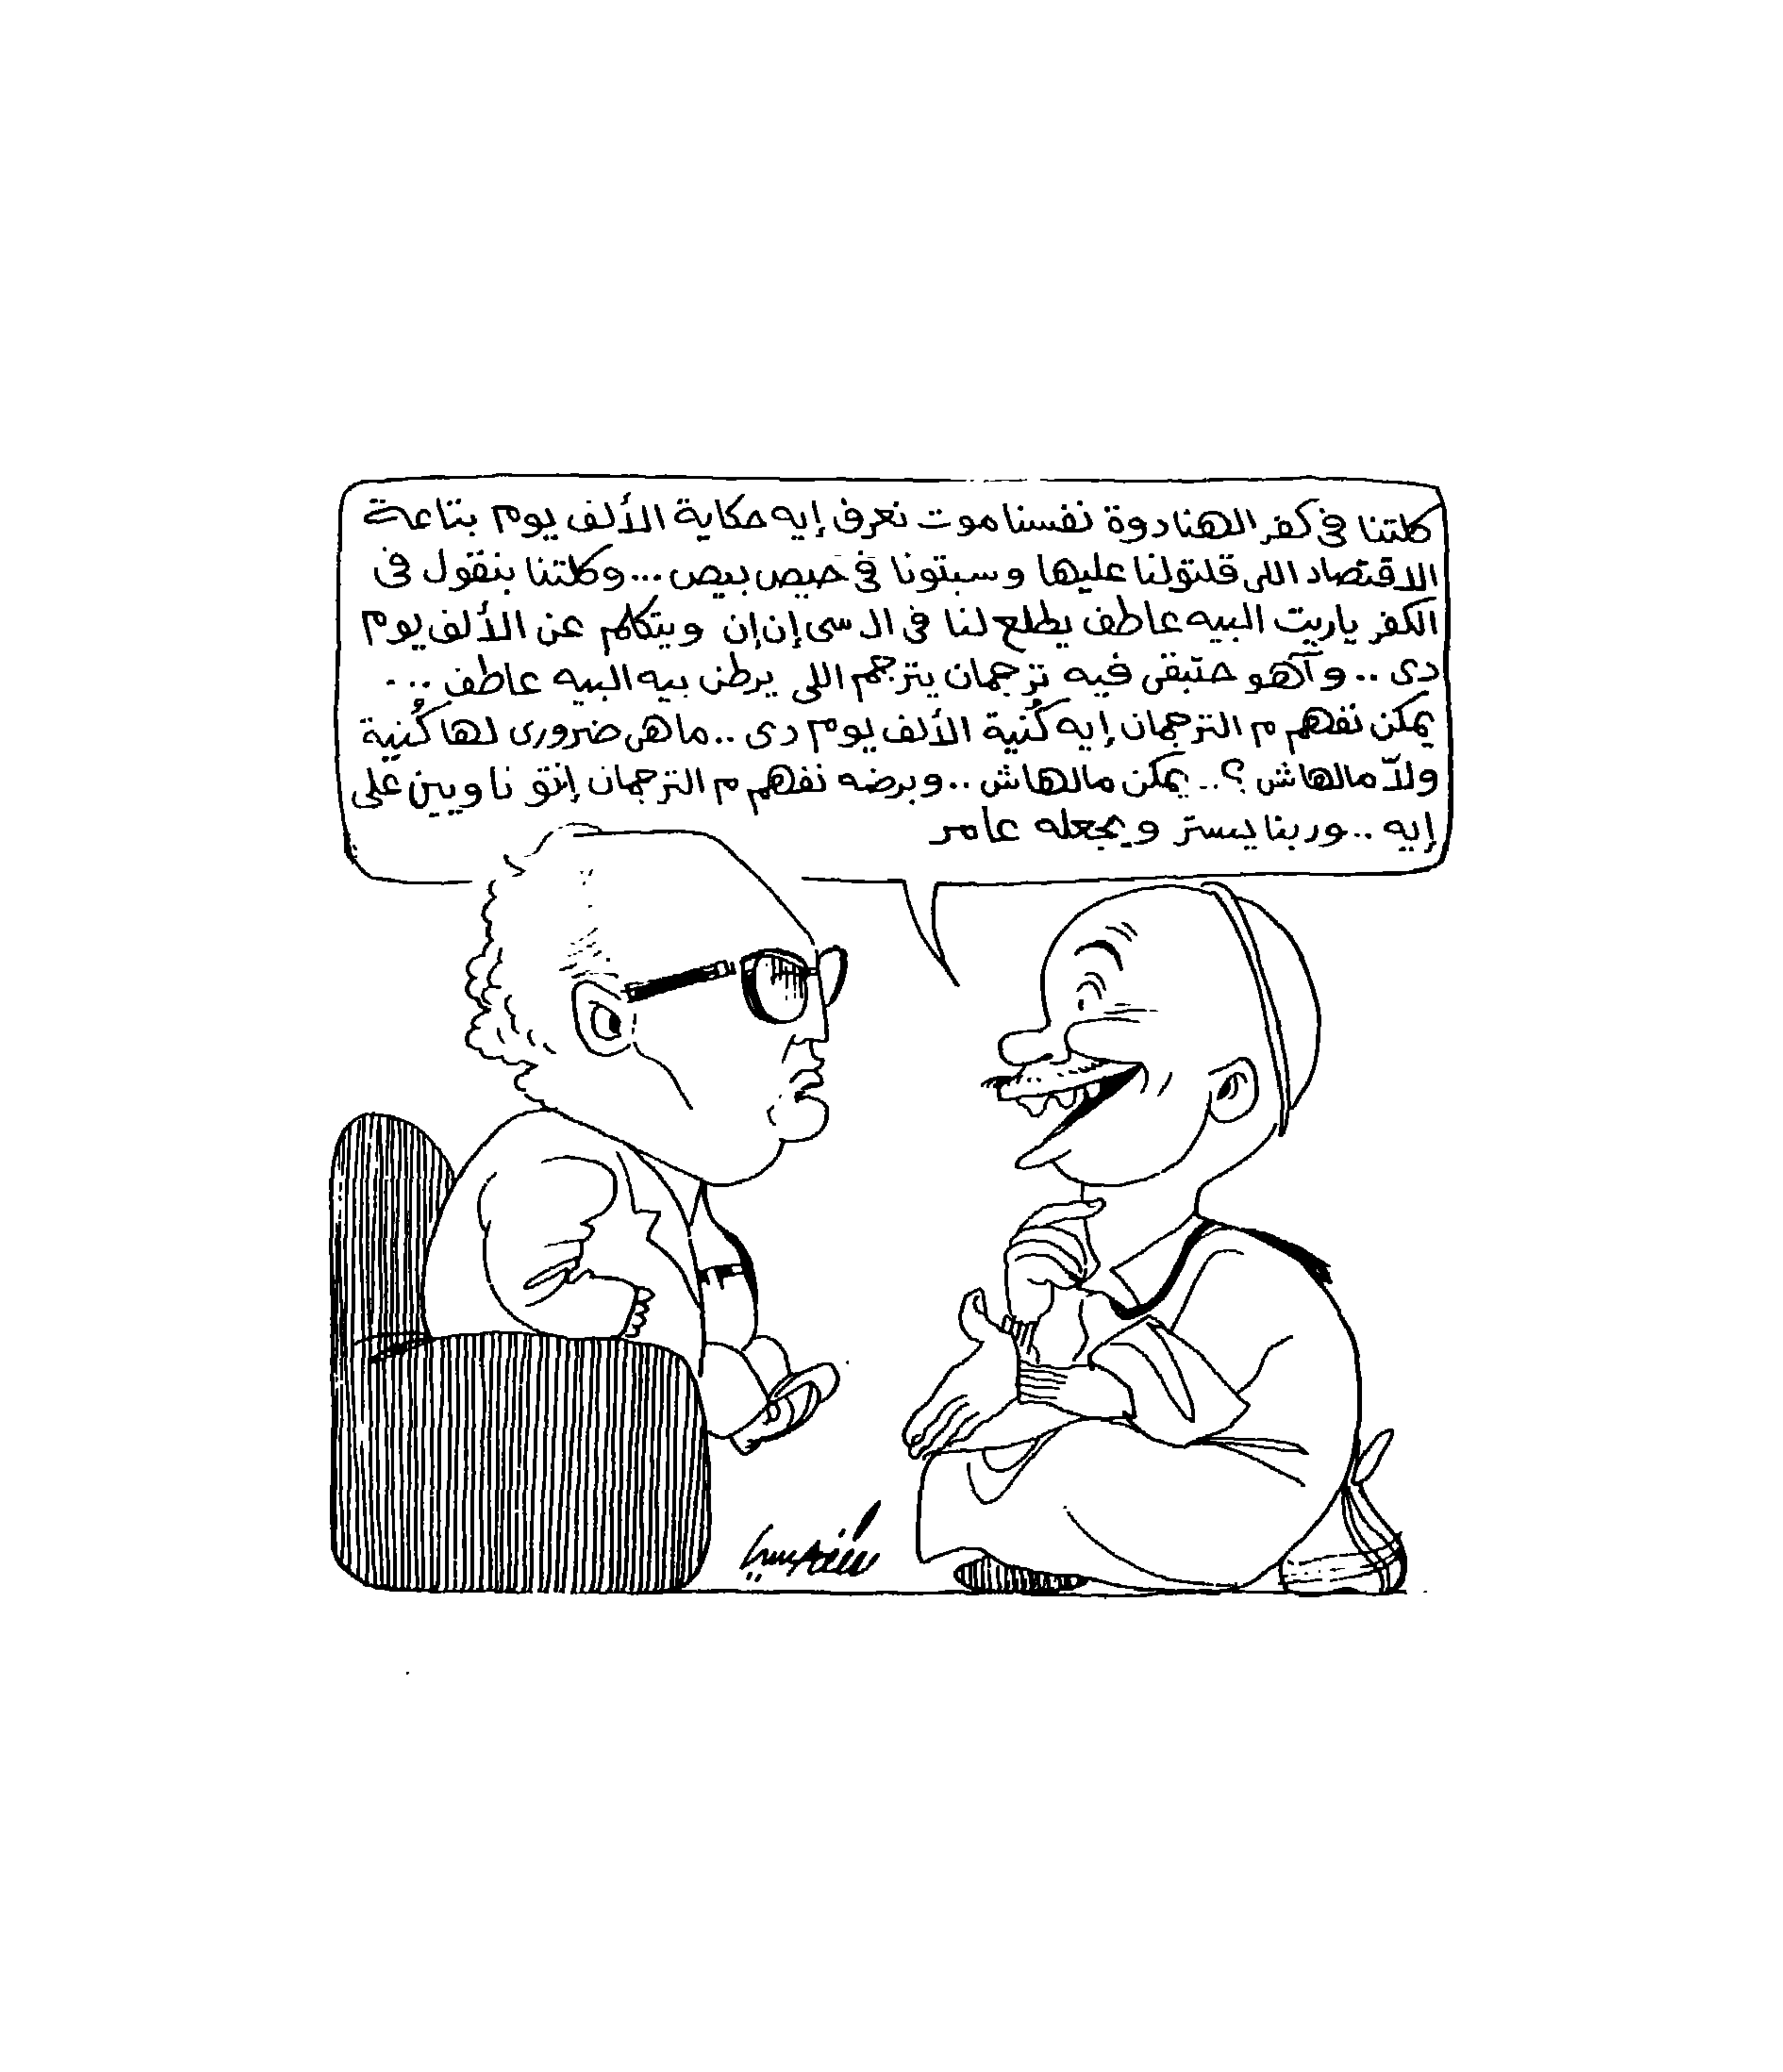 كلتنا فى كفر الهنادوة نفسنا موت نعرف إيه حكاية الألف يوم بتاعة
الاقتصاد اللى قلتولنا عليها وسبتونا فى حيص بيص... وكلتنا بنقول فى
الكفر ياريت البيه عاطف يطلع لنا فى ال سى إن إن ويتكلم عن الألف يوم
دى .. وآهو حتبقى فيه ترجمان يترجم اللى يرطن بيه البيه عاطف ...
يمكن نفهم م الترجمان إيه كُنية الألف يوم دى .. ماهى ضرورى لها كُنية
ولاّ مالهاش ؟.. يمكن مالهاش .. وبرضه نفهم م الترجمان إنتو ناويين على
إيه .. وربنا يستر ويجعله عامر